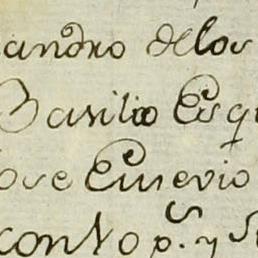 andro delos
Basilio Esq
ose Eusevio
conto p.s y S